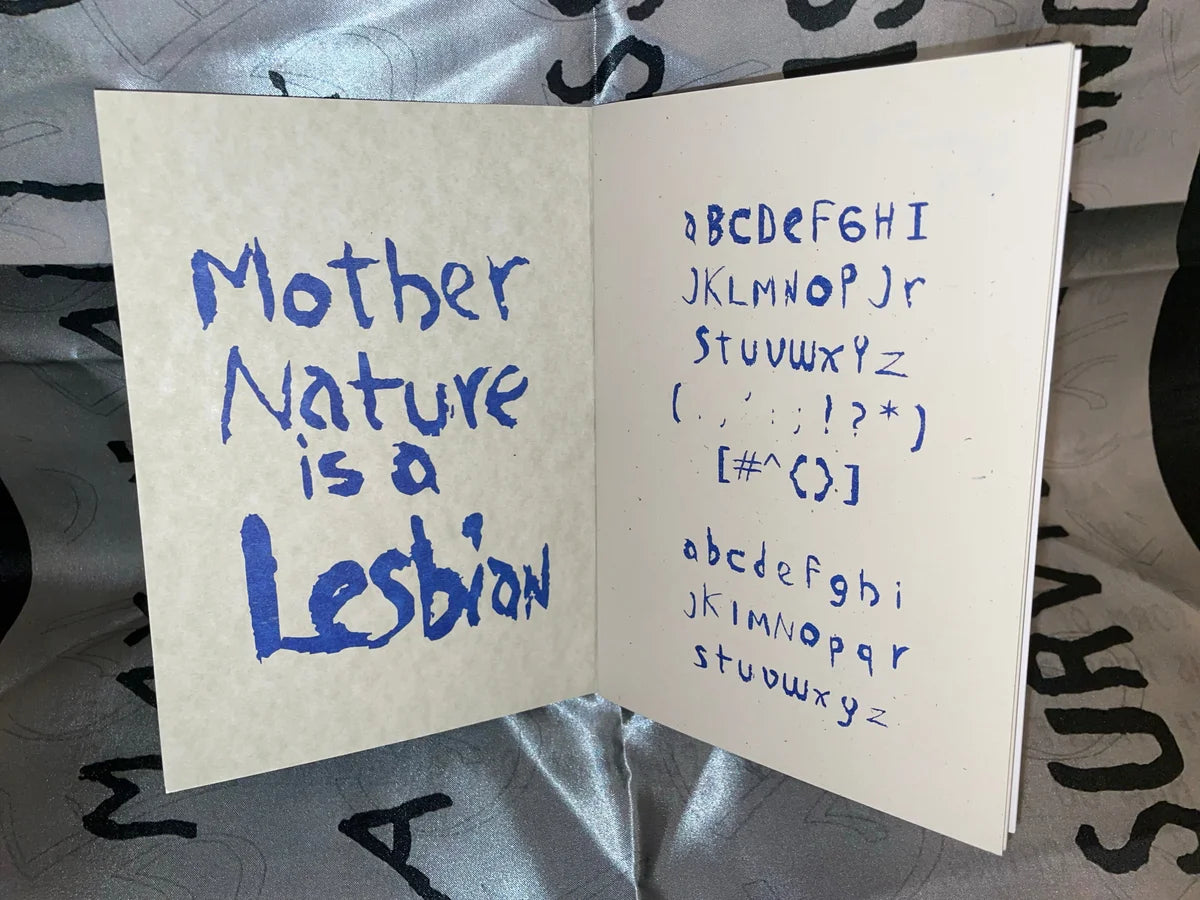 Mother
Nature
is a
Lesbian
aBCDeFGHI
JKLMNOPJr
StuvwxYz
(.,':;!?*)
[#^{}]
abcdefghi
jKlMNopqr
stuvwxyz
SURV
M
A